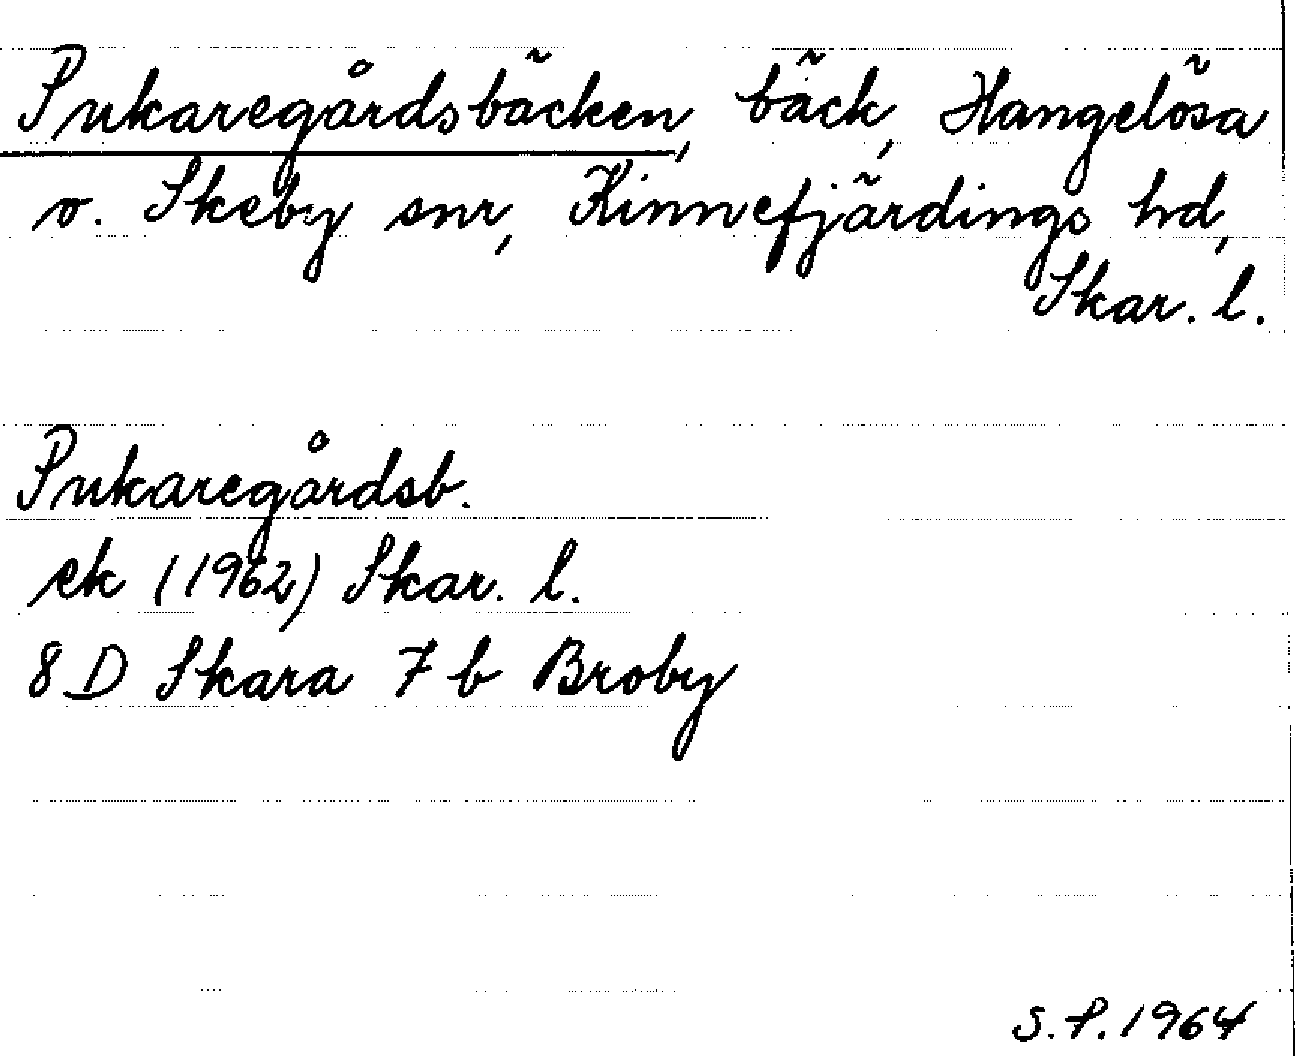 Pukaregårdsbäcken, bäck, Hangelösa
o. Skeby snr, Kinnefjärdings hd,
Skar. l.
Pukaregårdsb.
ek (1962) Skar. l.
8 D Skara 7 b Broby
S.P. 1964